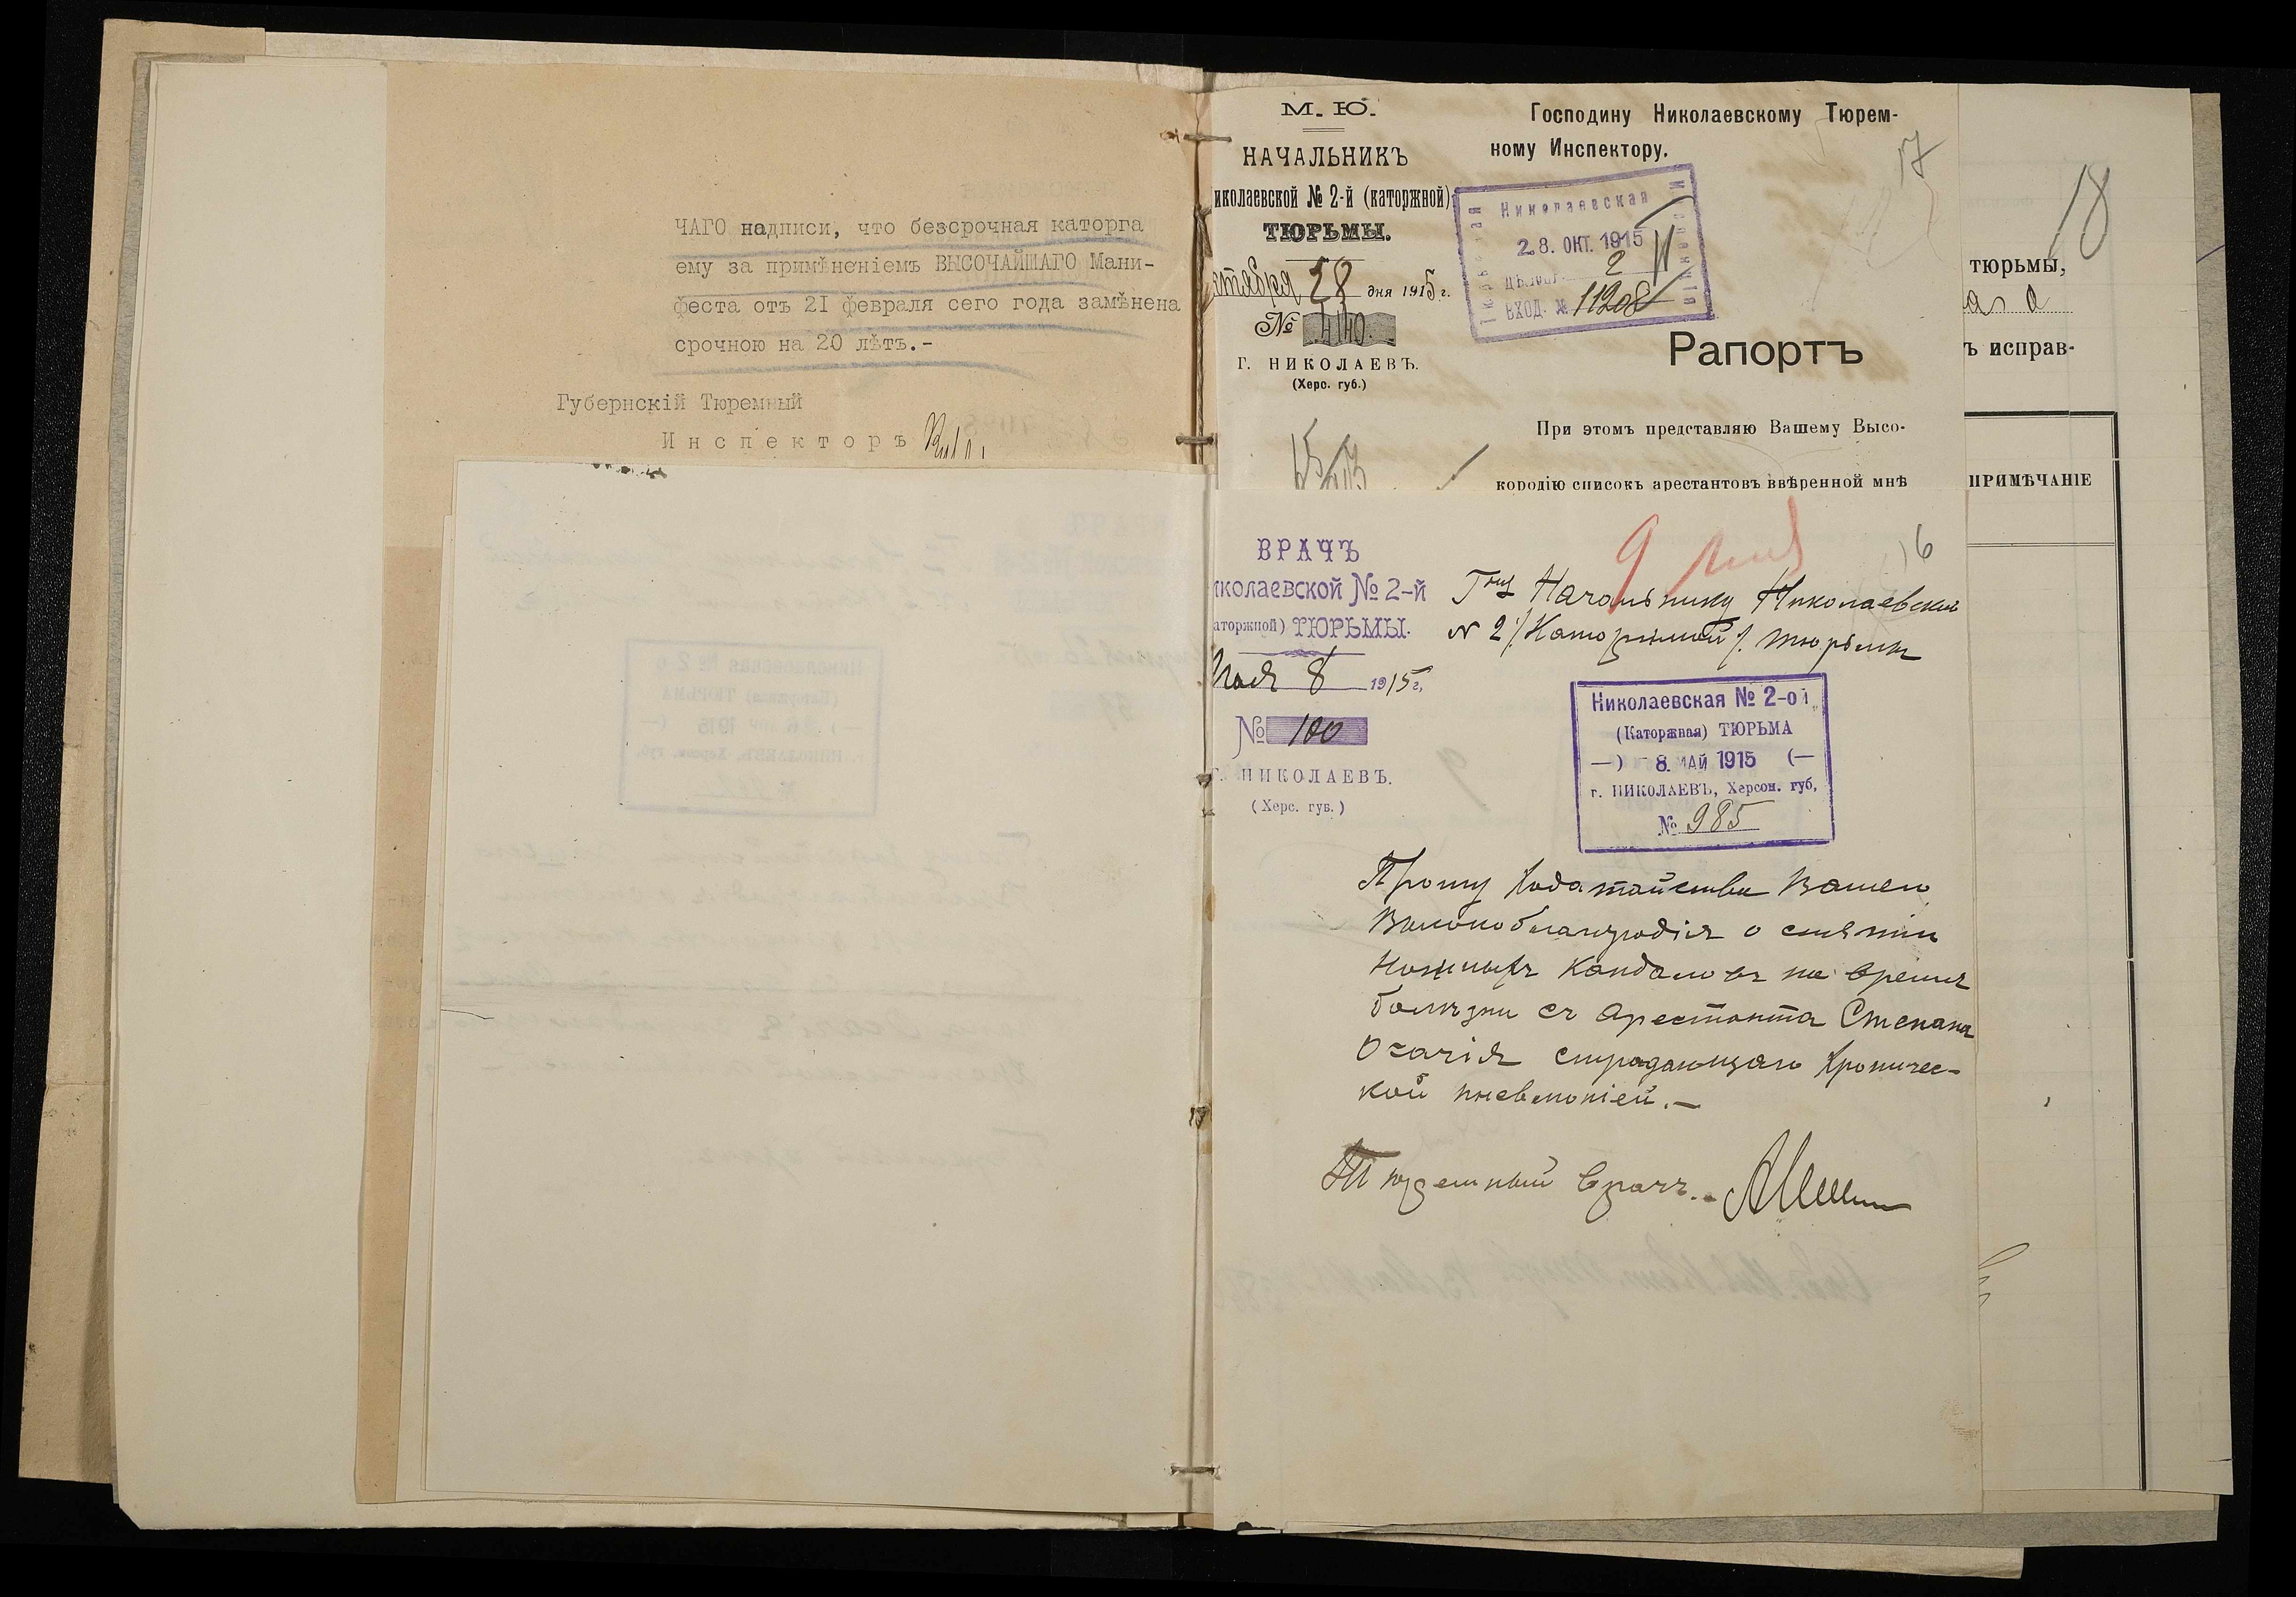 ЧАГО надписи, что безсрочная каторга
ему за примѣненіемъ ВЫСОЧАЙШАГО Мани-
феста отъ 21 февраля сего года замѣнена
срочною на 20 лѣтъ.-
Губернскій Тюремный
Инспекторъ
М. Ю.
НАЧАЛЬНИКЪ
иколаевской № 2-й (каторжной)
ТЮРЬМЫ.
ктября 28 дня 1915 г.
№ 440.
Г. НИКОЛАЕВЪ.
(Херс. губ.)
Господину Николаевскому Тюрем-
ному Инспектору.
17
Николаевская
28. ОКТ. 1915
2
ВХОД. № 11208
Рапортъ
При этомъ представляю Вашему Высо-
кородію списокъ арестантовъ ввѣренной мнѣ
18
тюрьмы,
ъ исправ-
ПРИМѢЧАНІЕ
ВРАЧЪ
иколаевской № 2-й
аторжной) ТЮРЬМЫ.
Мая 8 1915 г.
№ 100
г. НИКОЛАЕВЪ.
(Херс. губ.)
9
16
Гну Начальнику Николаевской
№ 2 /Каторжной/ тюрьмы
Николаевская № 2-ой
(Каторжная) ТЮРЬМА
—) 8. МАЙ 1915 (—
г. НИКОЛАЕВЪ, Херсон. губ.
№ 985
Прошу ходатайства Вашего
Высокоблагородія о снятіи
ножныхъ кандаловъ на время
болѣзни съ арестанта Степана
Осачія страдающаго хроничес-
кой пневмоніей.—
Тюремный врачъ.